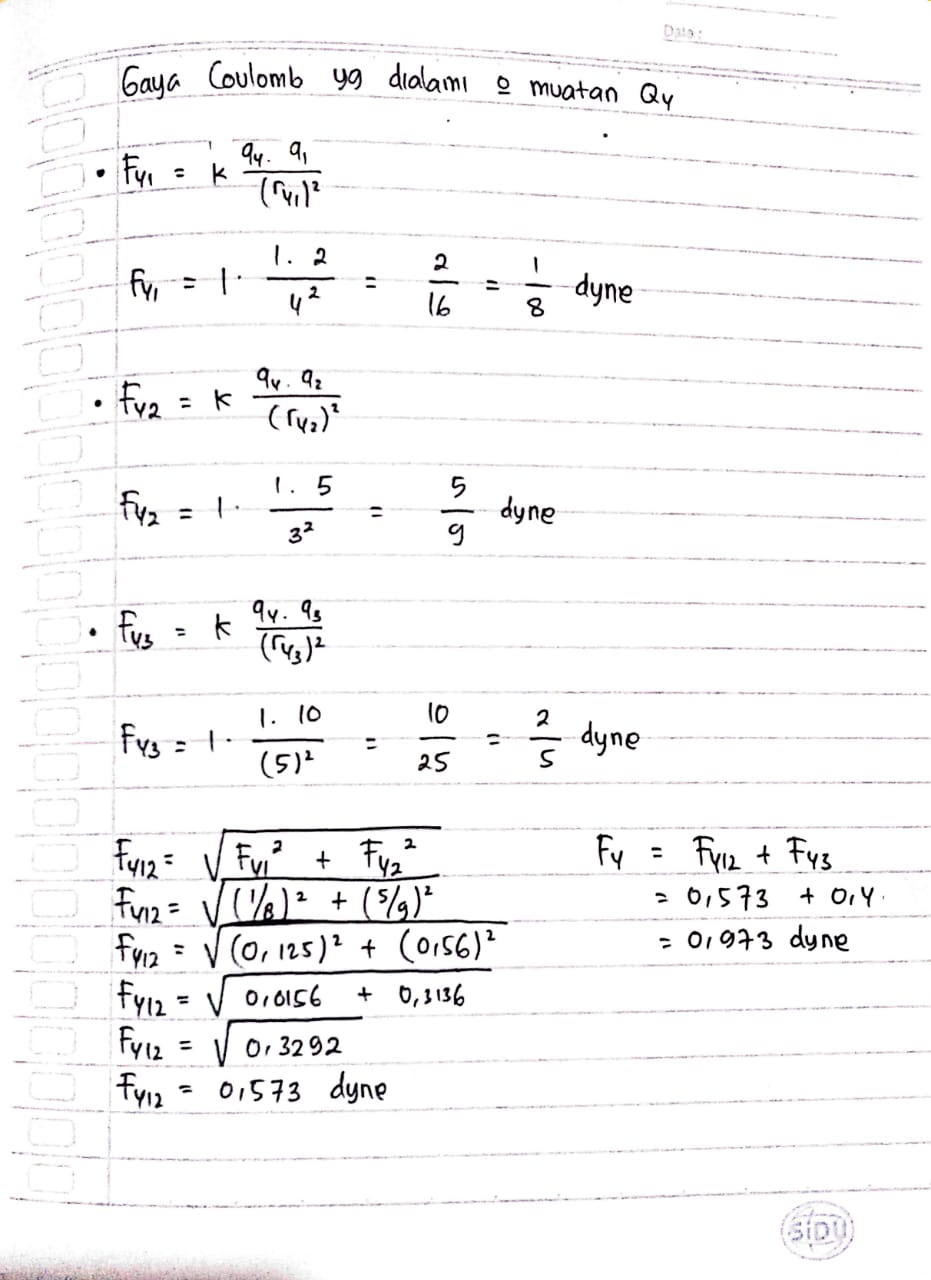 Date:
Gaya Coulomb yg dialami o muatan Qy
• Fy1 = k qy. q1 / (ry1)²
Fy1 = 1. 1. 2 / 4² = 2/16 = 1/8 dyne
• Fy2 = k qy. q2 / (ry2)²
Fy2 = 1. 1. 5 / 3² = 5/9 dyne
• Fy3 = k qy. q3 / (ry3)²
Fy3 = 1. 1. 10 / (5)² = 10/25 = 2/5 dyne
Fy12 = √(Fy1² + Fy2²)
Fy12 = √((1/8)² + (5/9)²)
Fy12 = √((0,125)² + (0,56)²)
Fy12 = √(0,0156 + 0,3136)
Fy12 = √(0,3292)
Fy12 = 0,573 dyne
Fy = Fy12 + Fy3
= 0,573 + 0,4.
= 0,973 dyne
SIDU